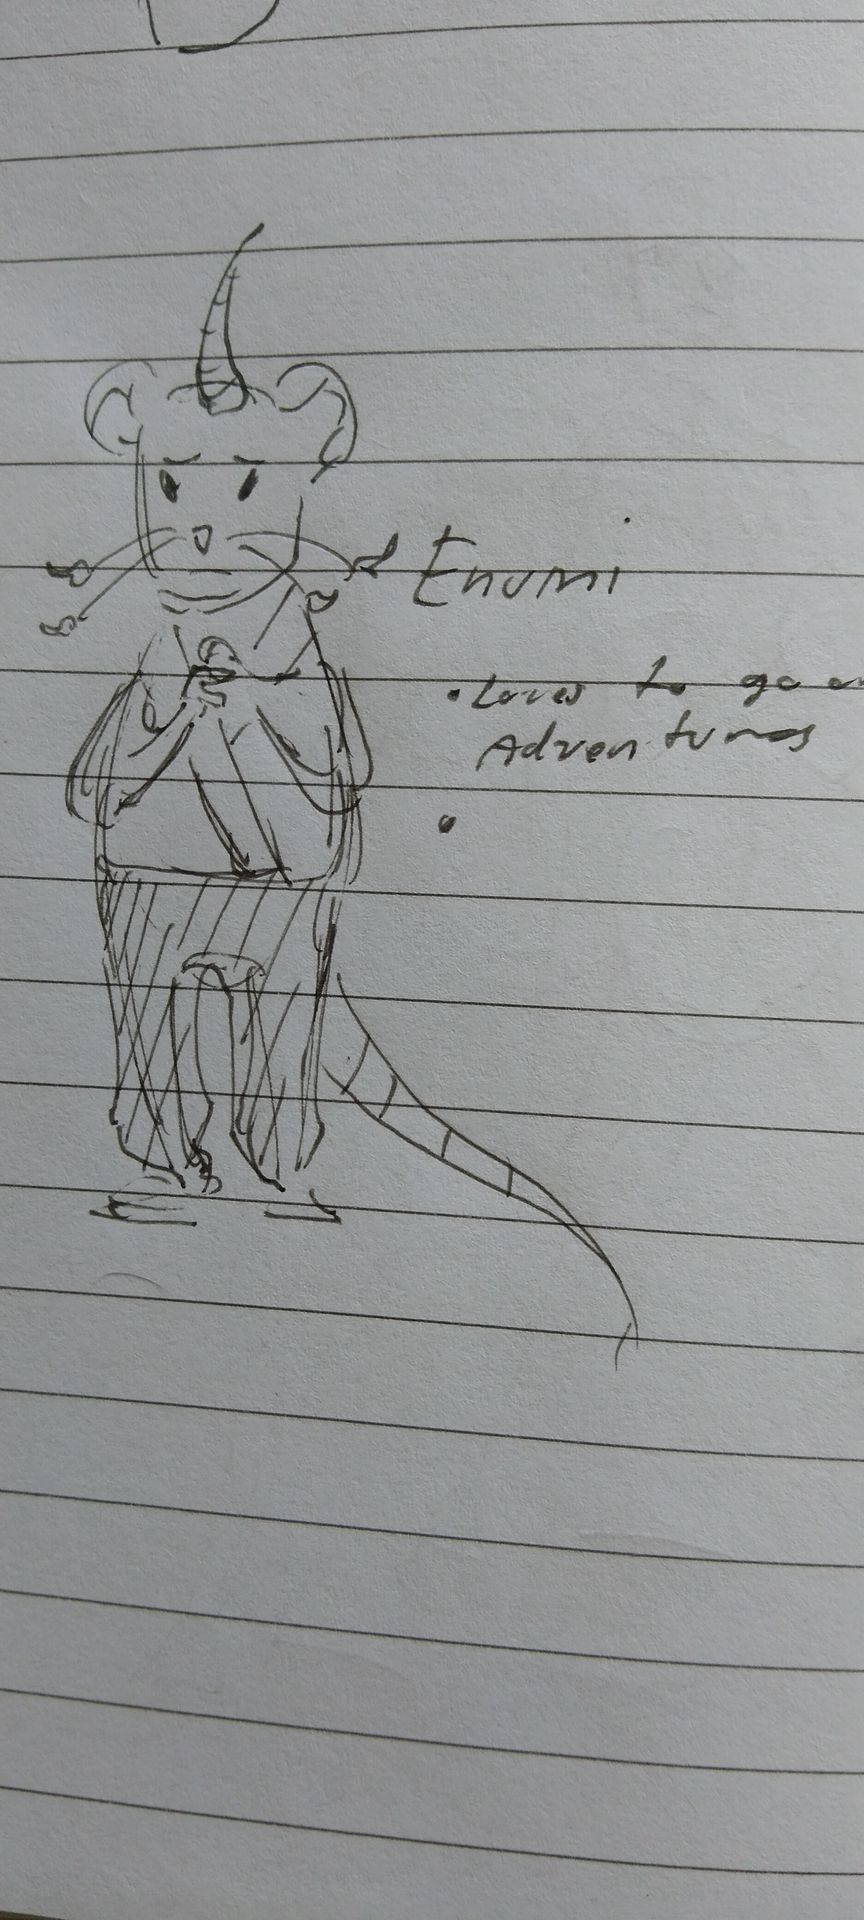 Enumi
• Loves to go on
Adventures
•